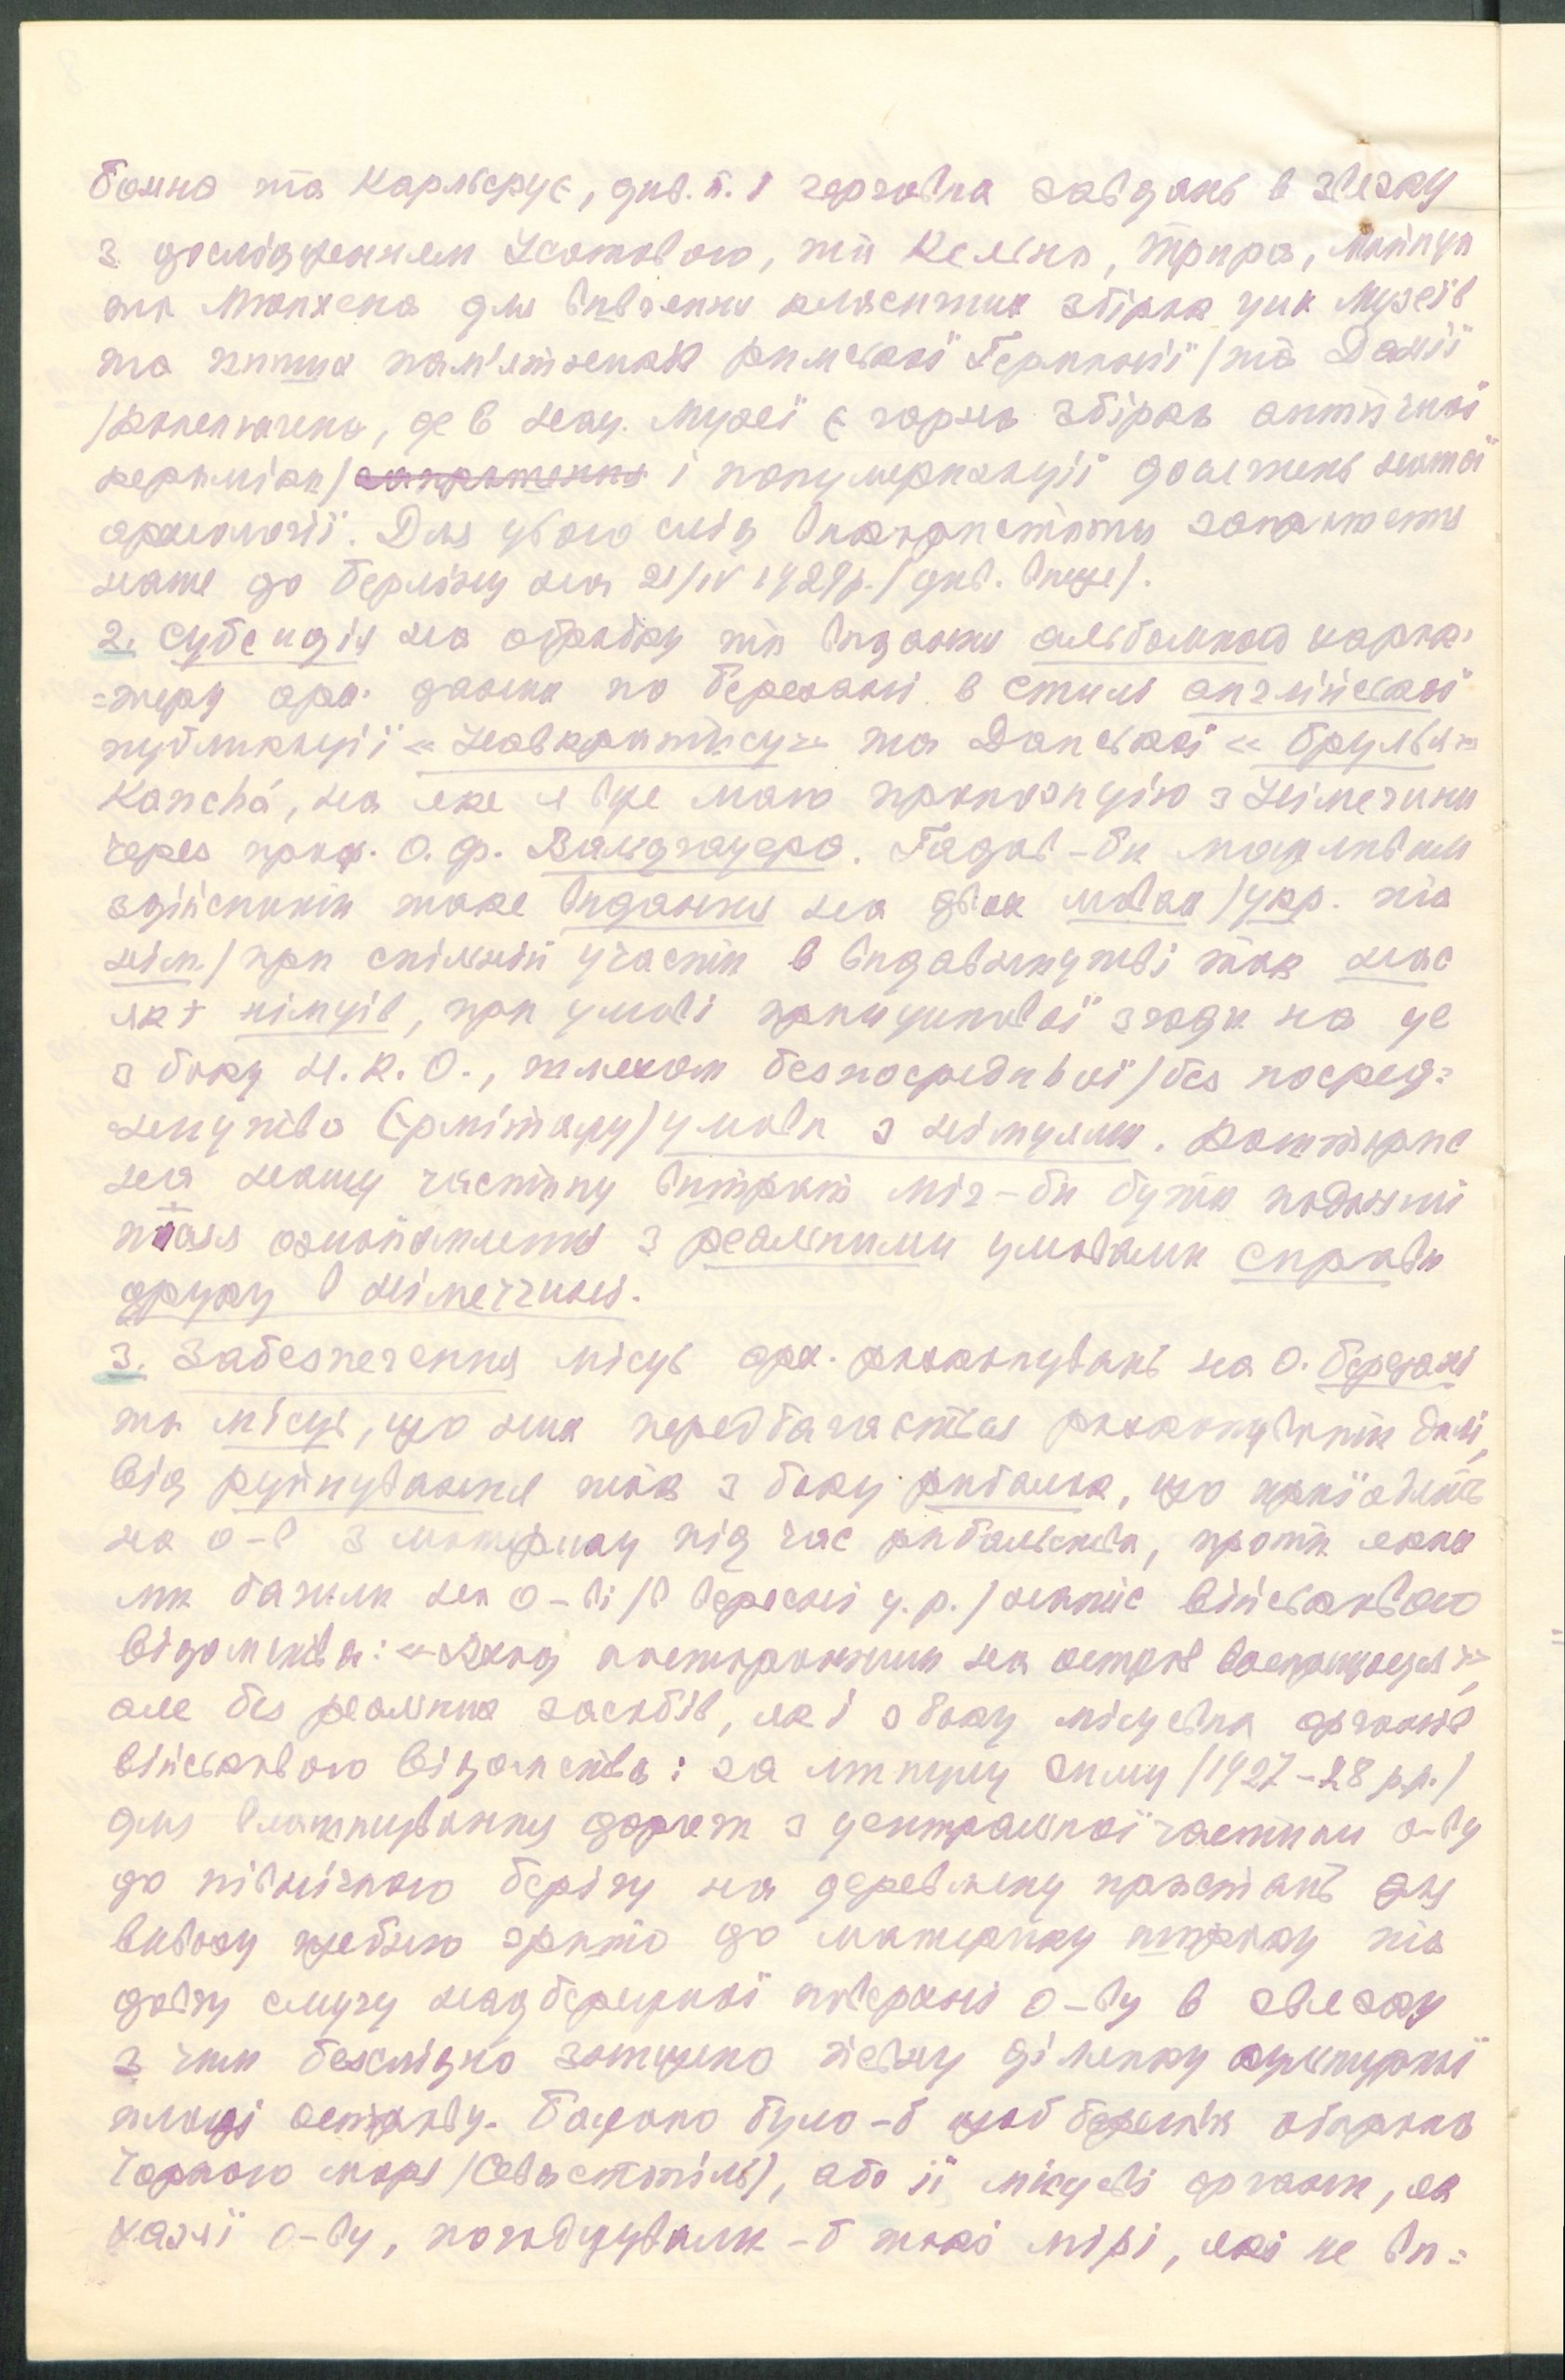 Бонна та Карльсрує, див. п. 1 чергових завдань в звязку
з дослідженням Усатового, та Кельна, Трира, Майнца
та Мюнхена для вивчення класичних збірок цих музеїв
та инших пам'яток римської Германії / та Данії
/Копенгаген, де в нац. музеї є гарна збірка античної
кераміки/ запрошення і популяризації досягнень нашої
археології. Для цього слід використати запрошення
наше до Берліну на 21/IV 1929 р. / див. вище/.
2. Субсидія на обробку та видання альбомного харак-
=теру арх. даних по Березані в стилі англійської
публикації «Навкратису» та Данської «Брульи=
Kanchá, на яке я вже маю пропозицію з Німеччини
через проф. О. Ф. Вальдгауера. Гадав-би можливим
здійснити таке видання на двох мовах /укр. та
нім./ при спільній участи в видавництві так нас
як і німців, при умові принципової згоди на це
з боку Н. К. О., шляхом безпосередньої /без посеред=
ництва Ермітажу/ умови з німцями. Кошторис
на нашу частину витрат міг-би бути поданий
після ознайомлення з реальними умовами справи
друку в Німеччині.
3. Забезпечення місць арх. розкопувань на о. Березані
та місць, що них передбачається розкопувати далі,
від руйнування так з боку рибалок, що приїздять
на о-в з материку під час рибальства, проти яких
ми бачили на о-ві /в вересні ц. р./ напис військового
відомства: «Вход посторонним на остров воспрещается»,
але без реальних засобів, як і з боку місцевих органів
військового відомства: за минулу зиму /1927-28 р.р./
для влаштування дороги з центральної частини о-ву
до північного берігу на деревляну пристань для
вивозу щебню зрито до материку широку та
довгу смугу надбережної поверхні о-ву в звязку
з чим безслідно знищено певну ділянку культурної
площі острову. Бажано було-б щоб берегова оборона
Чорного моря /Севастопіль/, або її місцеві органи, як
хазяї о-ву, погоджували-б такі міри, які не ви=